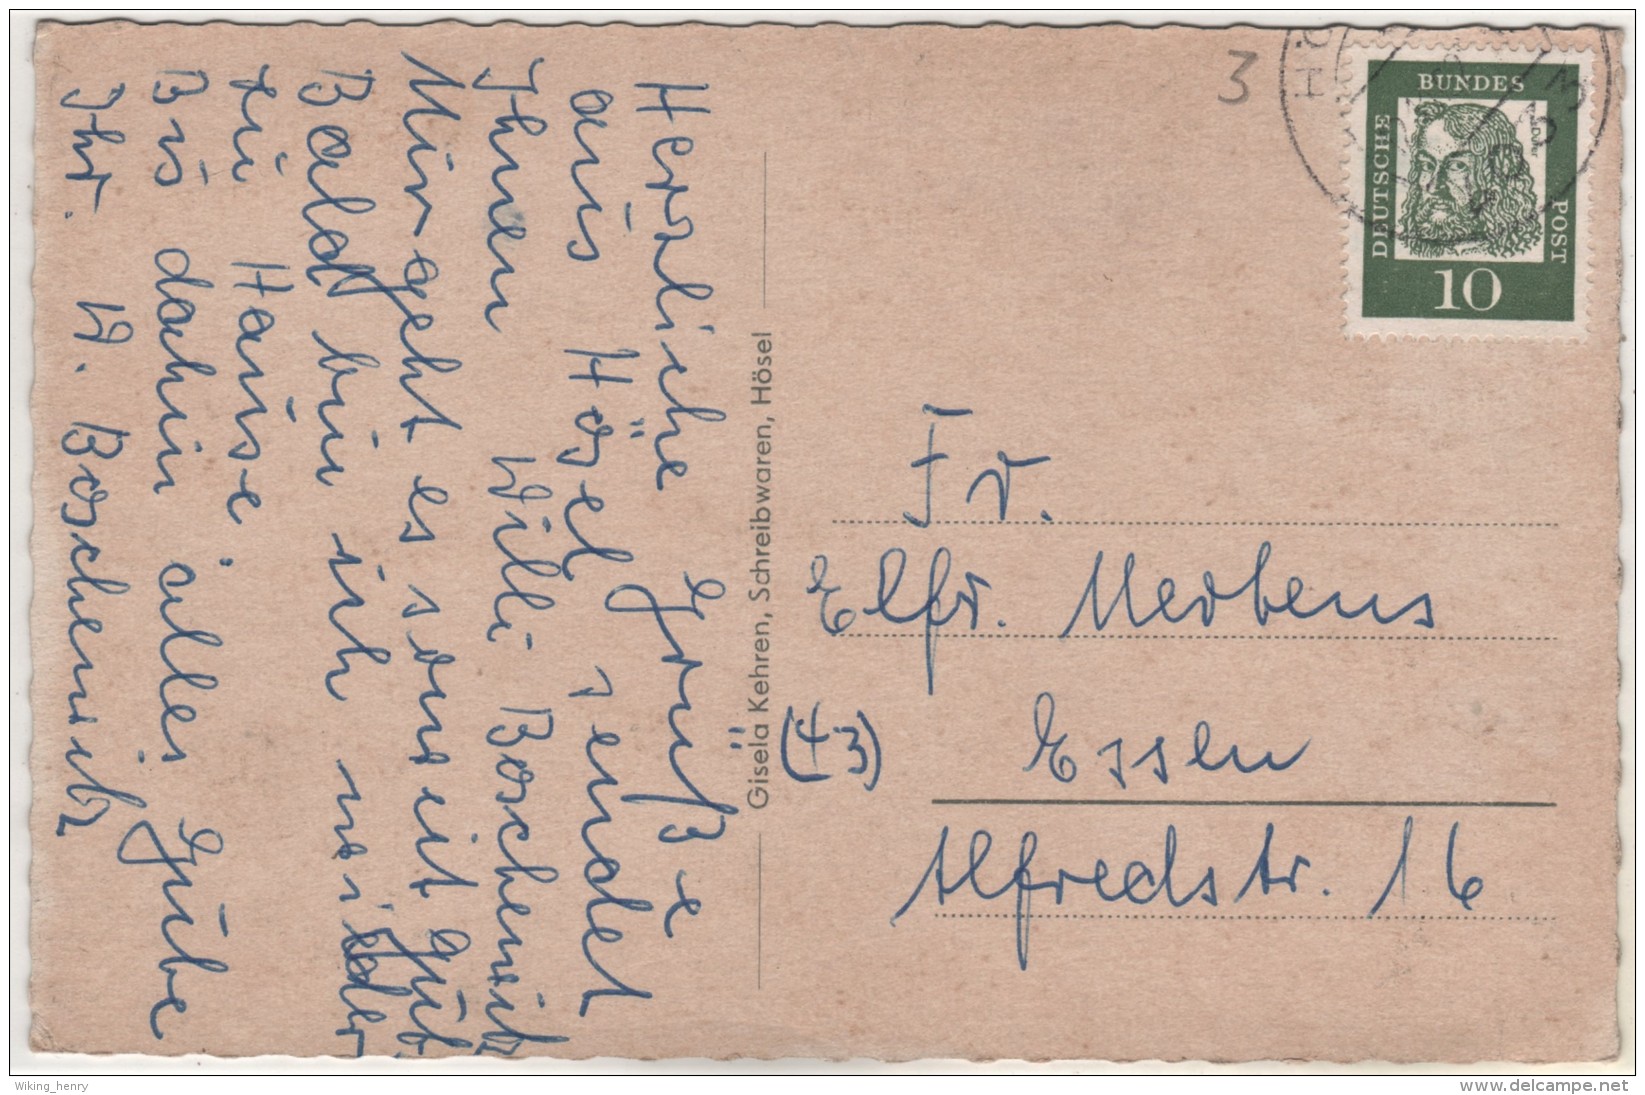 Herzliche Grüße
aus Hösel sendet
Ihnen Willi Boschewitz
Mir geht es soweit gut.
Bald bin ich wieder
zu Hause.
Bis dahin alles Gute
Ihr. W. Boschewitz
Gisela Kehren, Schreibwaren, Hösel
3
DEUTSCHE
BUNDES
POST
10
Fr.
Elfr. Merbens
(43) Essen
Alfredstr. 16
Wiking_henry
www.delcampe.net